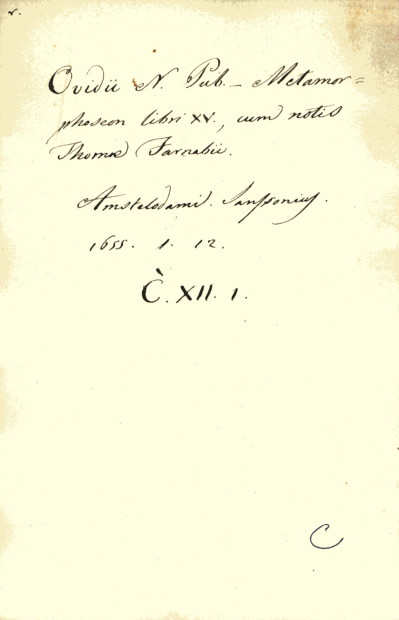 Ovidii N. Pub. – Metamor=
phoseon libri XV., cum notis
Thomæ Farnabii.
Amstelodami. Janssonius.
1655. 1. 12.
C̀. XII. 1.
C